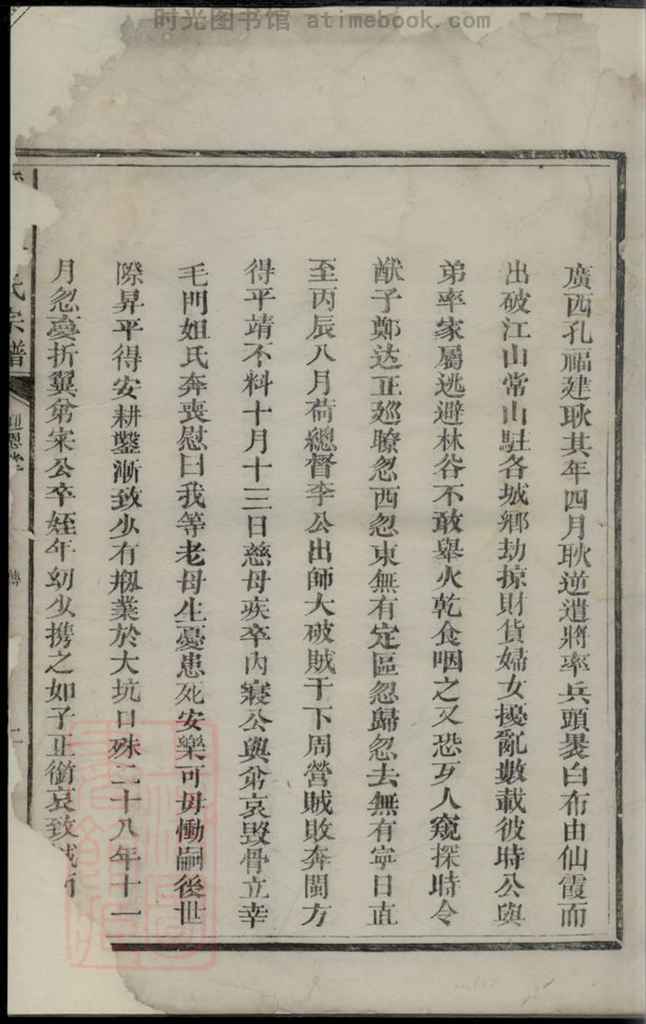 时光图书馆 atimebook.com
廣西孔福建耿其年四月耿逆遣將率兵頭裹白布由仙霞而
出破江山常山駐各城鄉劫掠財貨婦女擾亂數載彼時公與
弟率家屬逃避林谷不敢舉火乾食咽之又恐歹人窺探時令
猷子鄭达正廵瞭忽西忽東無有定區忽歸忽去無有寕日直
至丙辰八月荷總督李公出師大破賊于下周營賊敗奔閩方
得平靖不料十月十三日慈母疾卒內寢公與弟哀毀骨立幸
毛門姐氏奔喪慰曰我等老母生憂患死安樂可毋慟嗣後世
際昇平得安耕鑿漸致少有剏業於大坑口殊二十八年十一
月忽憂折翼弟宋公卒姪年幼少携之如子正銜哀致
氏宗譜
傳